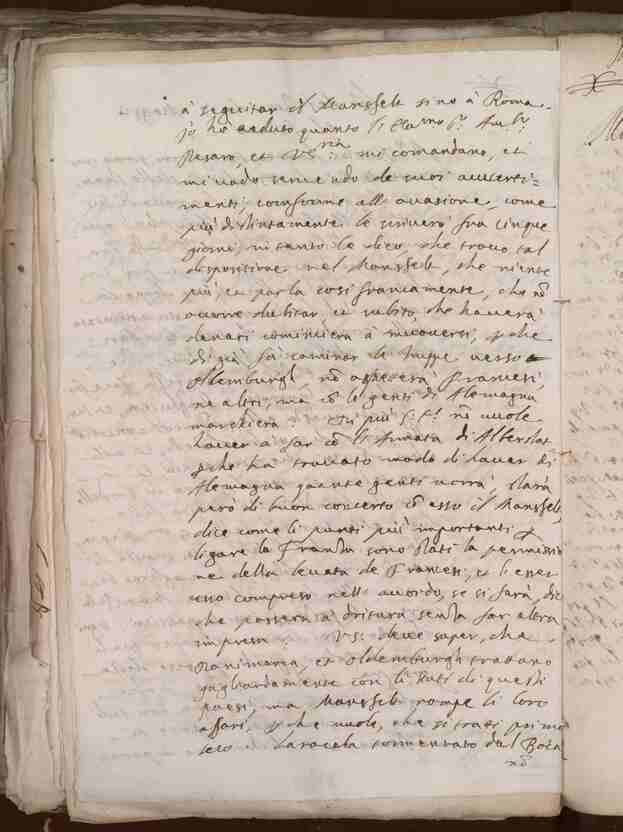 à seguitar il Mansfelt sino à Roma.
Io hò veduto quanto li Cla.mo S.r Amb.r
Pesaro, et V.S. ria: mi comandano, et
mi vado servendo de suoi avverti=
menti conforme all'occasione, come
più distintamente le scriverò fra cinque
giorni, in tanto le dico, che trovo tal
dispositione nel Mansfelt, che niente
più, et parla così francamente, che nõ
occorre dubitar, et subito, che haverà
denari cominciera à muoversi, che
di già fà caminar le truppe verso
Oldemburgh, nõ aspetterà Francesi,
ne altri, ma cõ le genti di Alemagna
marchierà. Di più nõ vuole
haver à far cõ l'Armata di Alberstat
che ha trovato modo di haver di
Alemagna quante genti vorrà, starà
però di buon concerto cõ esso il Mansfelt,
dice come li punti più importanti
ligare la Franza sono stati la permissio
ne della levata de Francesi, et l'esser
esso compreso nell'accordo, se si farà, dice
che passerà à dritura senza far altra
impresa. V.S: deve saper, che
Danimarca, et Oldemburgh trattano
gagliardamente con li stati di questi
paesi, ma Mansfelt rompe li loro
affari, che vuole, che si tratti primo
seco. tormentato dal
nõ